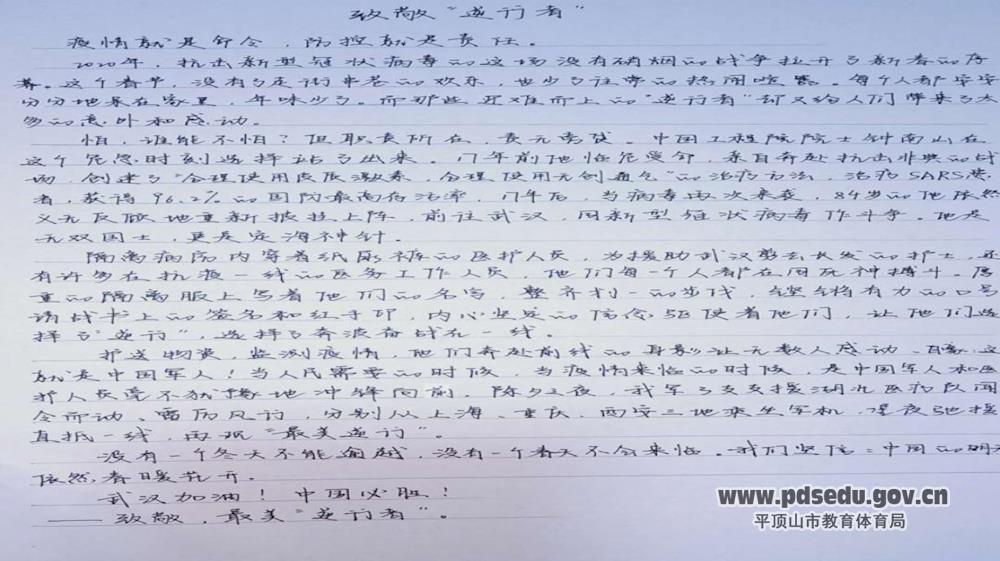 致敬“逆行者”
疫情就是命令，防控就是责任。
2020年，抗击新型冠状病毒的这场没有硝烟的战争拉开了新春的序
幕。这个春节，没有了走街串巷的欢乐，也少了往常的热闹喧嚣。每个人都安安
分分地呆在家里，年味少了。而那些迎难而上的“逆行者”却又给人们带来了太
多的意外和感动。
怕，谁能不怕？但职责所在，责无旁贷。中国工程院院士钟南山在
这个危急时刻选择站了出来。17年前他临危受命，亲自奔赴抗击非典的战
场，创建了“合理使用皮质激素，合理使用无创通气”的治疗方法，治疗SARS患
者，获得96.2%的国际最高存活率，17年后，当病毒再次来袭，84岁的他依然
义无反顾地重新披挂上阵，前往武汉，同新型冠状病毒作斗争。他是
无双国士，更是定海神针。
隔离病房内穿着纸尿裤的医护人员，为援助武汉剪去长发的护士，还
有许多在抗疫一线的医务工作人员，他们每一个人都在同死神搏斗。厚
重的隔离服上写着他们的名字，整齐划一的步伐，铿锵有力的口号
请战书上的签名和红手印，内心坚定的信念驱使着他们，让他们选
择了“逆行”，选择了奔波奋战在一线。
护送物资，监测疫情，他们奔赴前线的身影让无数人感动、自豪，这
就是中国军人！当人民需要的时候，当疫情来临的时候，是中国军人和医
护人员毫不犹豫地冲锋向前。除夕之夜，我军3支支援湖北医疗队闻
令而动、雷厉风行，分别从上海、重庆、西安三地乘坐军机，星夜驰援
直抵一线，再现“最美逆行”。
没有一个冬天不能逾越，没有一个春天不会来临。我们坚信：中国的明天
依然春暖花开。
武汉加油！中国必胜！
——致敬，最美“逆行者”。
www.pdsedu.gov.cn
平顶山市教育体育局